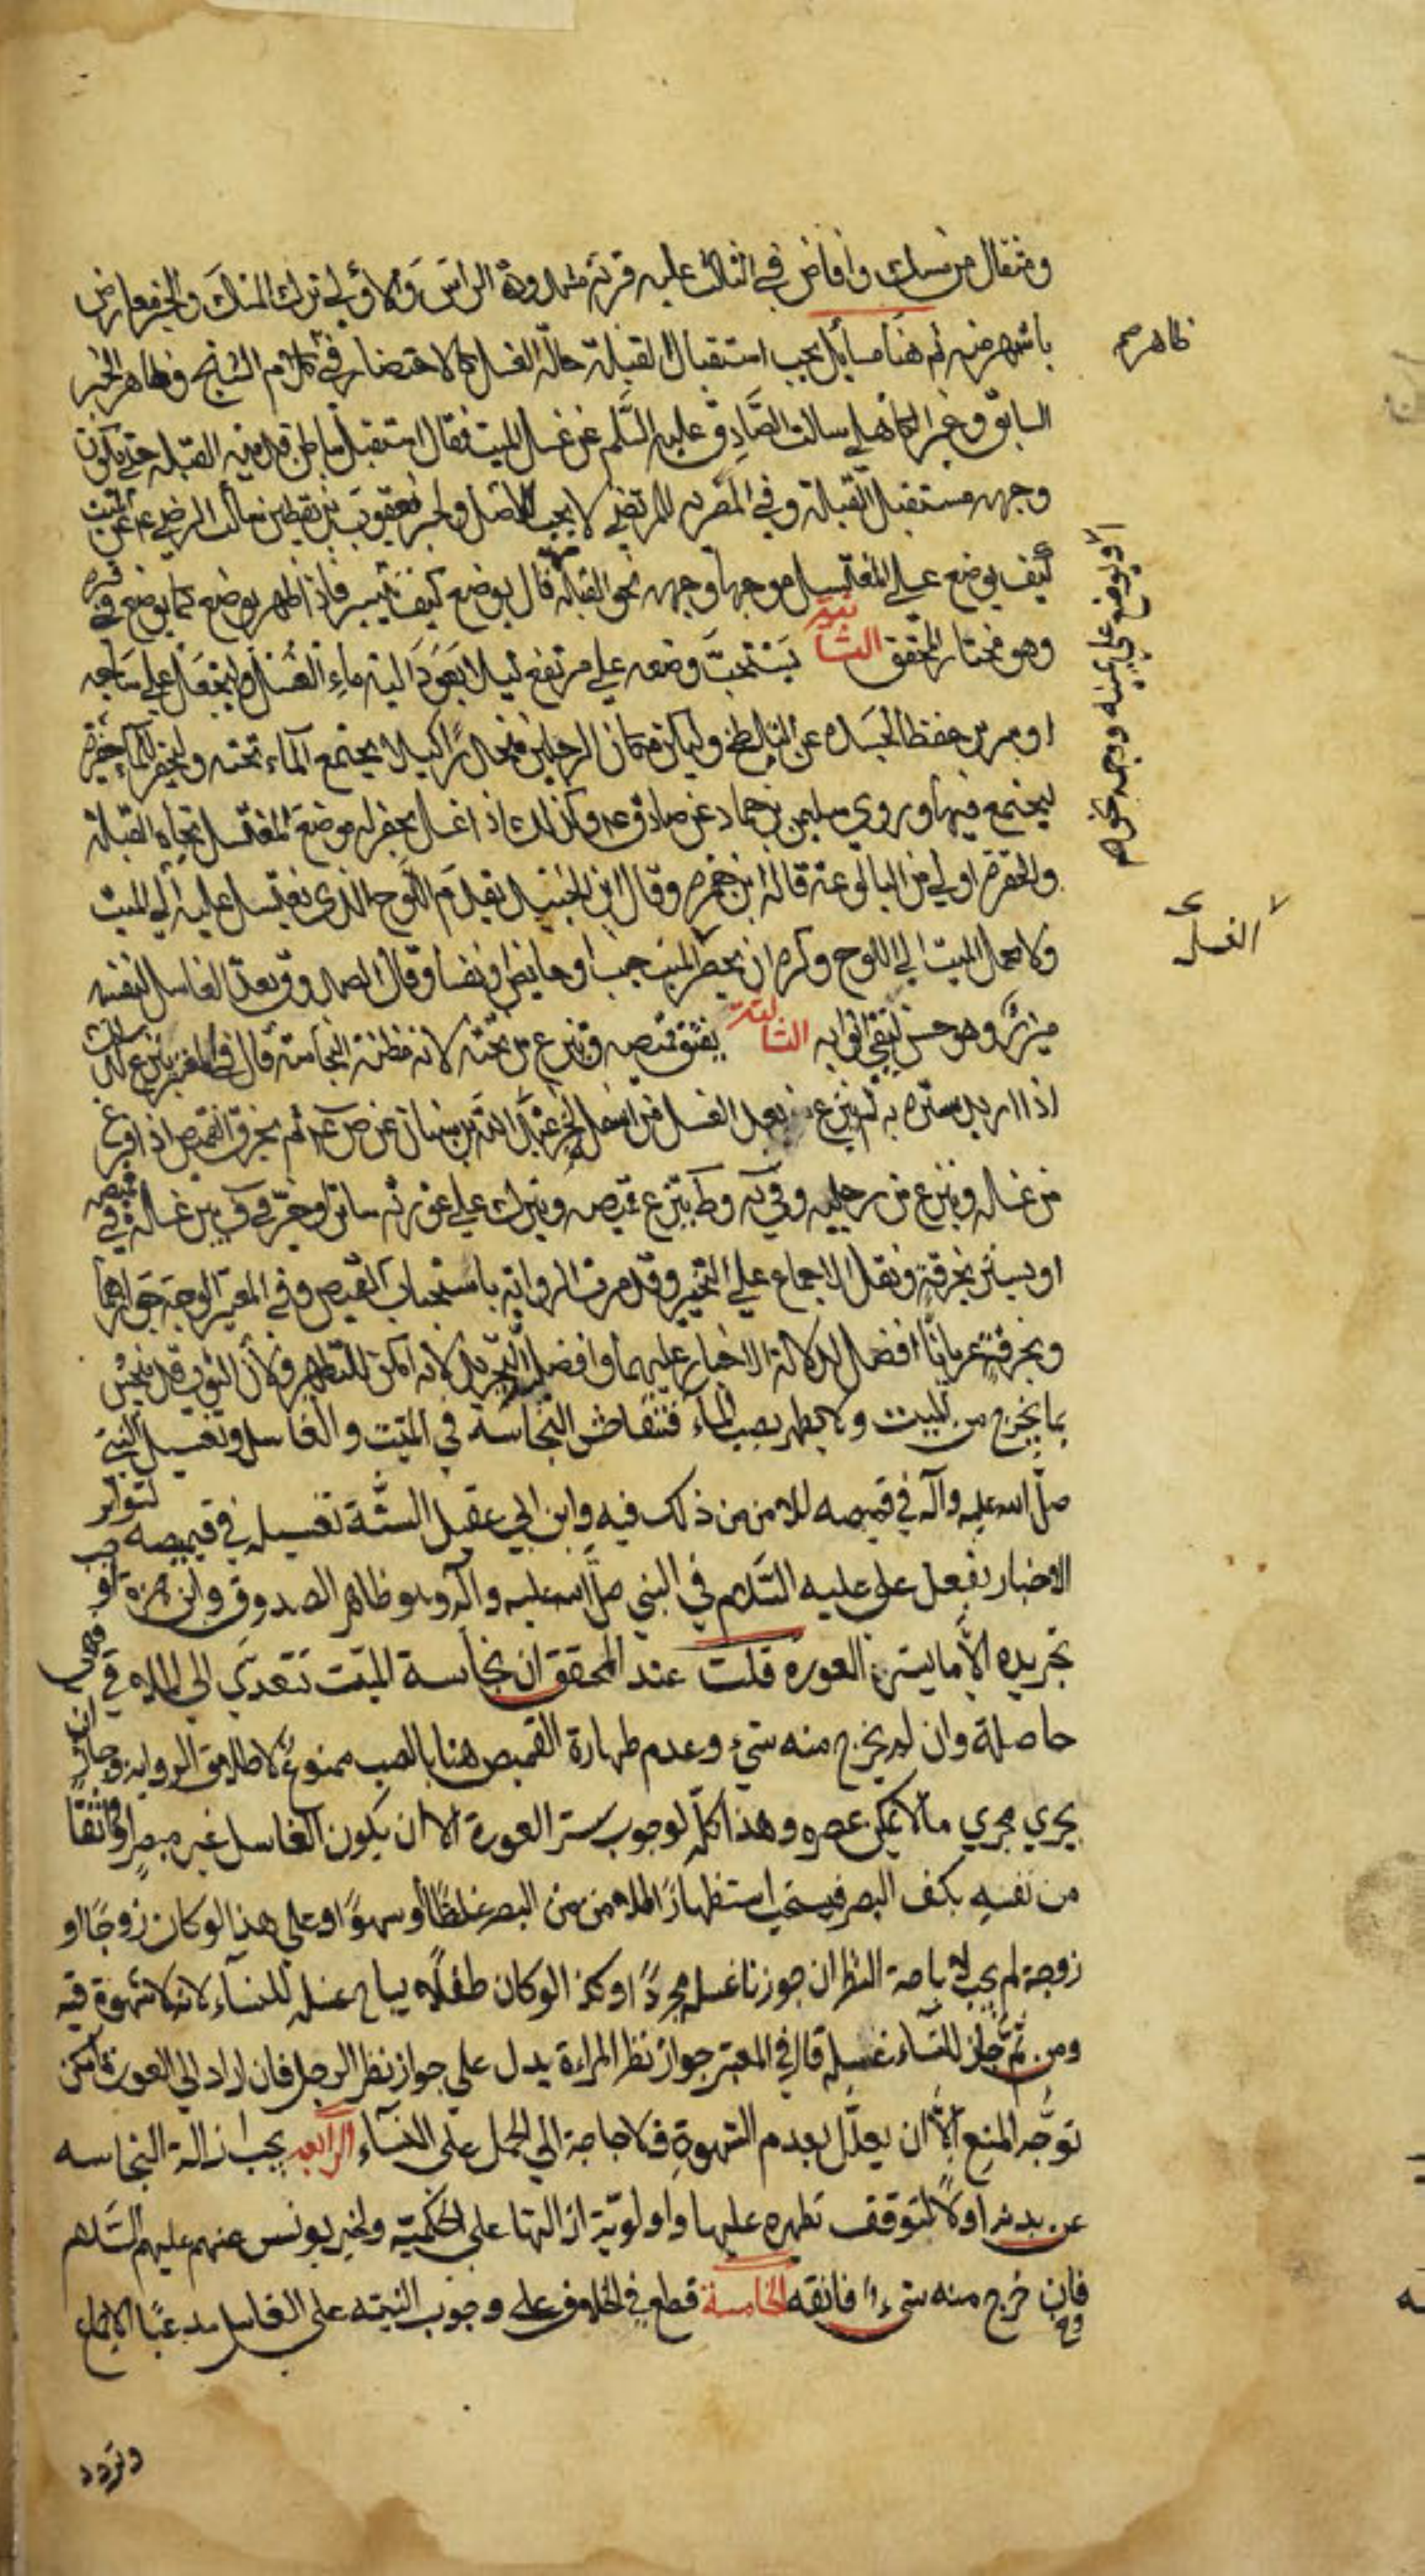 ومثقال من مسك وافاض في الثالث عليه قربة مشدودة الراس والاولى ترك المسك والخبر معارض
باشهر منه ثم هنا مسايل يجب استقبال القبلة حالة الغسل كالاحتضار في كلام الشيخ وظاهر الخبر
السابق وخبر الكاهلي سالت الصادق عليه السلم عن غسل الميت فقال استقبل بباطن قدميه القبلة حتى يكون
وجهه مستقبل القبلة وفي المصريه للمرتضى لا يجب للاصل ولخبر يعقوب بن يقطين سالت الرضى ع عن الميت
كيف يوضع على المغتسل موجها وجهه نحو القبلة قال يوضع كيف تيسر فاذا طهر يوضع كما يوضع في قبره
وهو مختار المحقق الثانية يستحب وضعه على مرتفع ليلا يعود اليه ماء الغسل وليجعل على ساجه
او سرير حفظا لجسده عن التلطخ وليكن مكان الرجلين منحدرا كيلا يجتمع الماء تحته وليحفر للماء حفيرة
ليجتمع فيها وروى سليمن بن حماد عن صادق ع وكذلك اذا غسل يحفر له موضع المغتسل تجاه القبلة
والحفرة اولى من البالوعة قاله ابن حمزه وقال ابن الجنيد يقدم اللوح الذي يغتسل عليه الى الميت
ولا يحمل الميت الى اللوح وكره ان يحضر الميت جنب او حايض او نفسا وقال الصدوق يعد الغاسل لنفسه
ميزرا وهو حسن ليقي اثوابه الثالثة يفتق قميصه وينزع من تحته لانه مظنة النجاسة قال في المعتبر ينزع كذلك
اذا اريد ستره به ثم ينزع بعد الغسل من اسفل لخبر عبد الله بن سنان عن ص ع ثم يخرق القميص اذا فرغ
من غسله وينزع من رجليه وفي يه وط ينزع قميصه ويترك على عورته ساترا وخير في ف بين غسله في قميصه
او يستر بخرقة ونقل الاجماع على التخير وقد مرت الرواية باستحباب القميص وفي المعتبر الوجه جوازهما
وبخرقة عريانا افضل لدلالة الاخبار عليهما وافضلية التجريد لانه امكن للتطهير ولان الثوب قد ينجس
بما يخرج من الميت ولا يطهر بصب الماء فتتفاحش النجاسة في الميت والغاسل وتغسيل النبي
صلى الله عليه وآله في قميصه للامن من ذلك فيه وابن ابي عقيل السنة تغسيله في قميصه لتواتر
الاخبار بفعل علي عليه السلام في النبي صلى الله عليه وآله وهو ظاهر الصدوق وابن حمزة
تجريده الا ما يستر العورة قلت عند المحقق ان نجاسة الميت تتعدى الى الملاقي
حاصلة وان لم يخرج منه شيء وعدم طهارة القميص هنا بالصب ممنوع لاطلاق الرواية وجاز ان
يجري مجرى مالا يمكن عصره وهذا كله لوجوب ستر العورة الا ان يكون الغاسل غير مبصر او واثقا
من نفسه بكف البصر فيستحب استظهارا للامن من البصر غلطا أو سهوا وعلى هذا لو كان زوجا او
زوجة لم يجب لاباحة النظر ان جوزنا غسله مجردا وكذا لو كان طفلا يباح غسله للنساء لانه لا شهوة فيه
ومن ثم جاز للنساء غسله قال في المعتبر جواز نظر المراءة يدل على جواز نظر الرجل فان اراد الى العورة امكن
توجه المنع الا ان يعلل بعدم الشهوة فلا حاجة الى الحمل على النساء الرابعة يجب ازالة النجاسه
عن بدنه اولا لتوقف تطهره عليها واولوية ازالتها على الحكمية ولخبر يونس عنهم عليهم السلام
فان خرج منه شيء فانقه الخامسة قطع في الخلاف على وجوب النيته على الغاسل مدعيا الاجماع
وتردد
ظاهر
أو يوضع على يمينه ووجهه نحو
الغسل